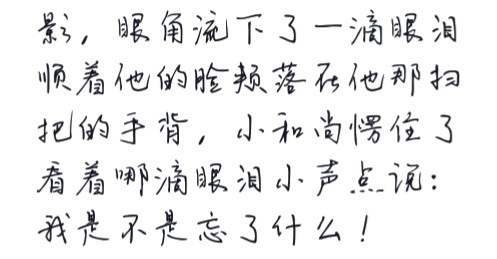 影，眼角流下了一滴眼泪
顺着他的脸颊落在他那扫
把的手背，小和尚愣住了
看着哪滴眼泪小声点说：
我是不是忘了什么！